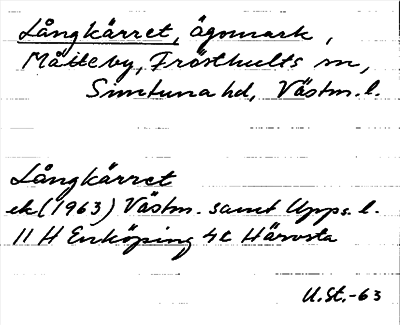 Långkärret, ägomark,
Målleby, Frösthults sn,
Simtuna hd, Västm. l.
Långkärret
ek (1963) Västm. samt Upps. l.
11 H Enköping 4c Härvsta
U.St.-63